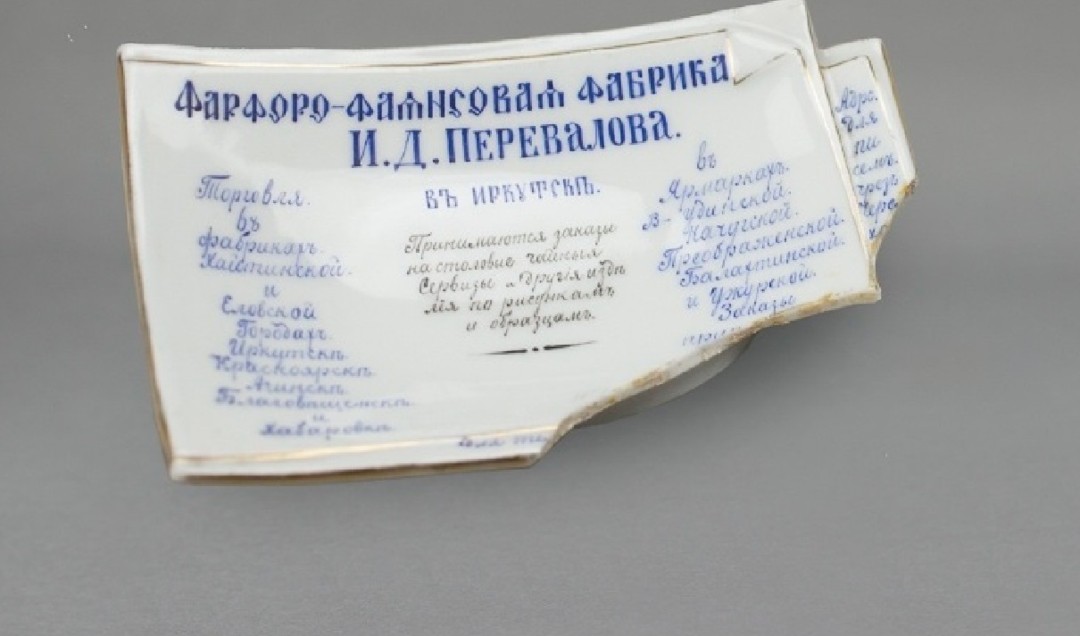 Фарфоро-фаянсовая фабрика
И.Д.Перевалова.
въ Иркутскѣ.
Торговля.
въ
фабрикахъ.
Хайтинской.
и
Еловской
Городахъ.
Иркутскѣ.
Красноярскѣ
Ачинскѣ
Благовѣщенскѣ
и
Хабаровкѣ
Принимаются заказы
на столовые чайныя
Сервизы и другія издѣ
лія по рисункамъ
и образцамъ.
въ
Ярмаркахъ.
В- Удинской.
Качугской.
Преображенской.
Балахтинской.
и Ужурской.
Заказы
Адрс.
для
пи
семъ.
чрезъ